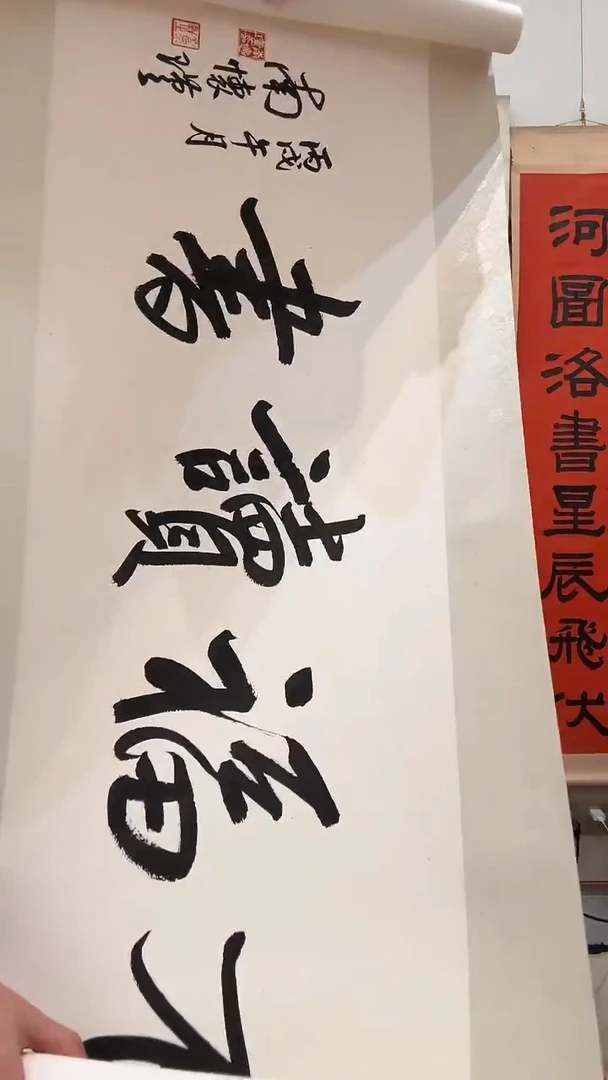 福讀書
丙戌午月
南懷瑾
河圖洛書星辰飛伏